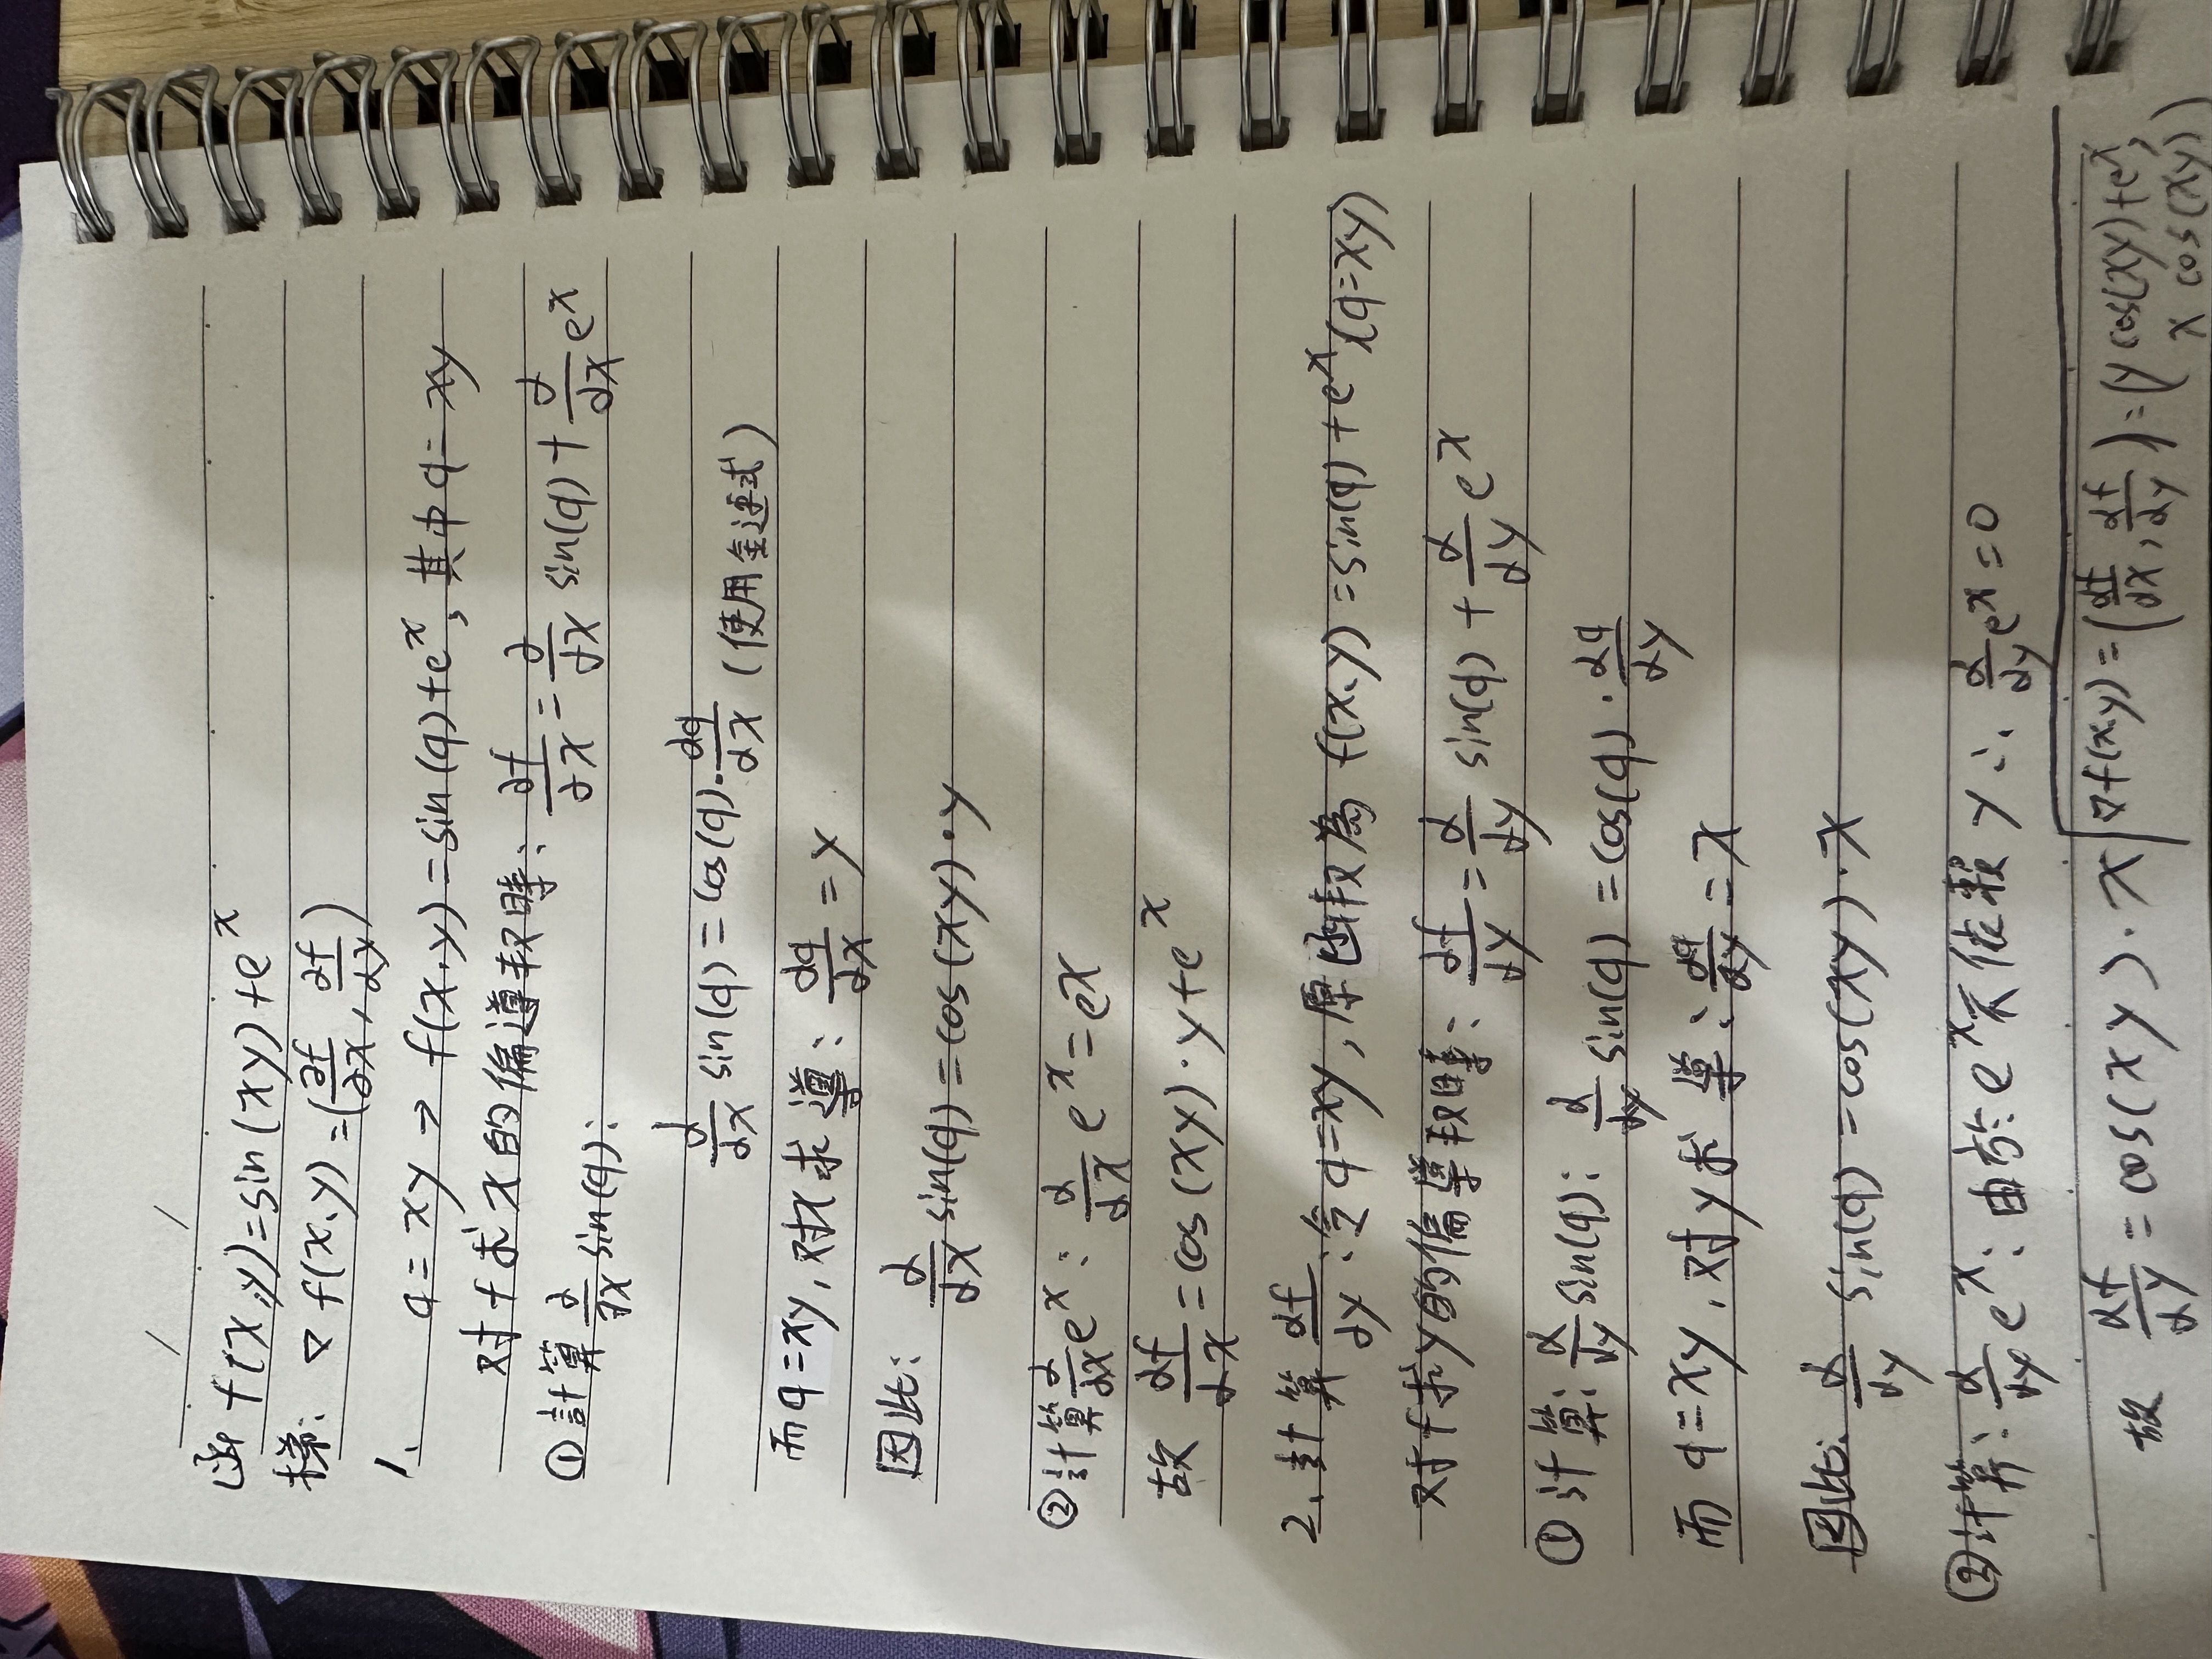 函 f(x,y)=sin(xy)+e^x
梯: ∇f(x,y)=(∂f/∂x, ∂f/∂y)
1. q=xy → f(x,y)=sin(q)+e^x, 其中 q=xy
对f求x的偏導数時: ∂f/∂x=∂/∂x sin(q)+∂/∂x e^x
①計算 ∂/∂x sin(q):
∂/∂x sin(q)=cos(q)·∂q/∂x (使用 式)
而q=xy, 对x求導: ∂q/∂x=y
因此: ∂/∂x sin(q)=cos(xy)·y
②計算 ∂/∂x e^x: ∂/∂x e^x=e^x
故 ∂f/∂x=cos(xy)·y+e^x
2. 計算 ∂f/∂y: 令q=xy, 原函数為 f(x,y)=sin(q)+e^x (q=xy)
对f求y的偏導数時: ∂f/∂y=∂/∂y sin(q)+∂/∂y e^x
①計算: ∂/∂y sin(q): ∂/∂y sin(q)=cos(q)·∂q/∂y
而 q=xy, 对y求導: ∂q/∂y=x
因此: ∂/∂y sin(q)=cos(xy)·x
②計算: ∂/∂y e^x: 由於e^x不依賴 y ∴ ∂/∂y e^x=0
故 ∂f/∂y=cos(xy)·x
∇f(x,y)=(∂f/∂x, ∂f/∂y)=(y cos(xy)+e^x,
x cos(xy))